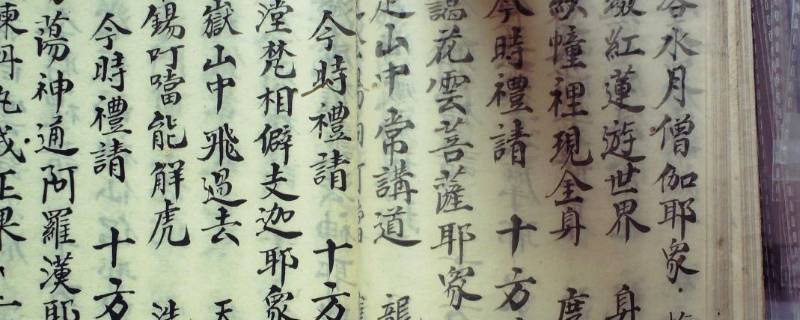 水月僧伽耶眾
紅蓮遊世界 身
幢裡現全身 度
今時禮請 十方
花雲菩薩耶眾
山中常講道 龍
今時禮請 十方
梵相僻支迦耶眾
嶽山中飛過去 天
錫叮噹能解虎
今時禮請 十方
蕩神通阿羅漢耶
丹 成正果